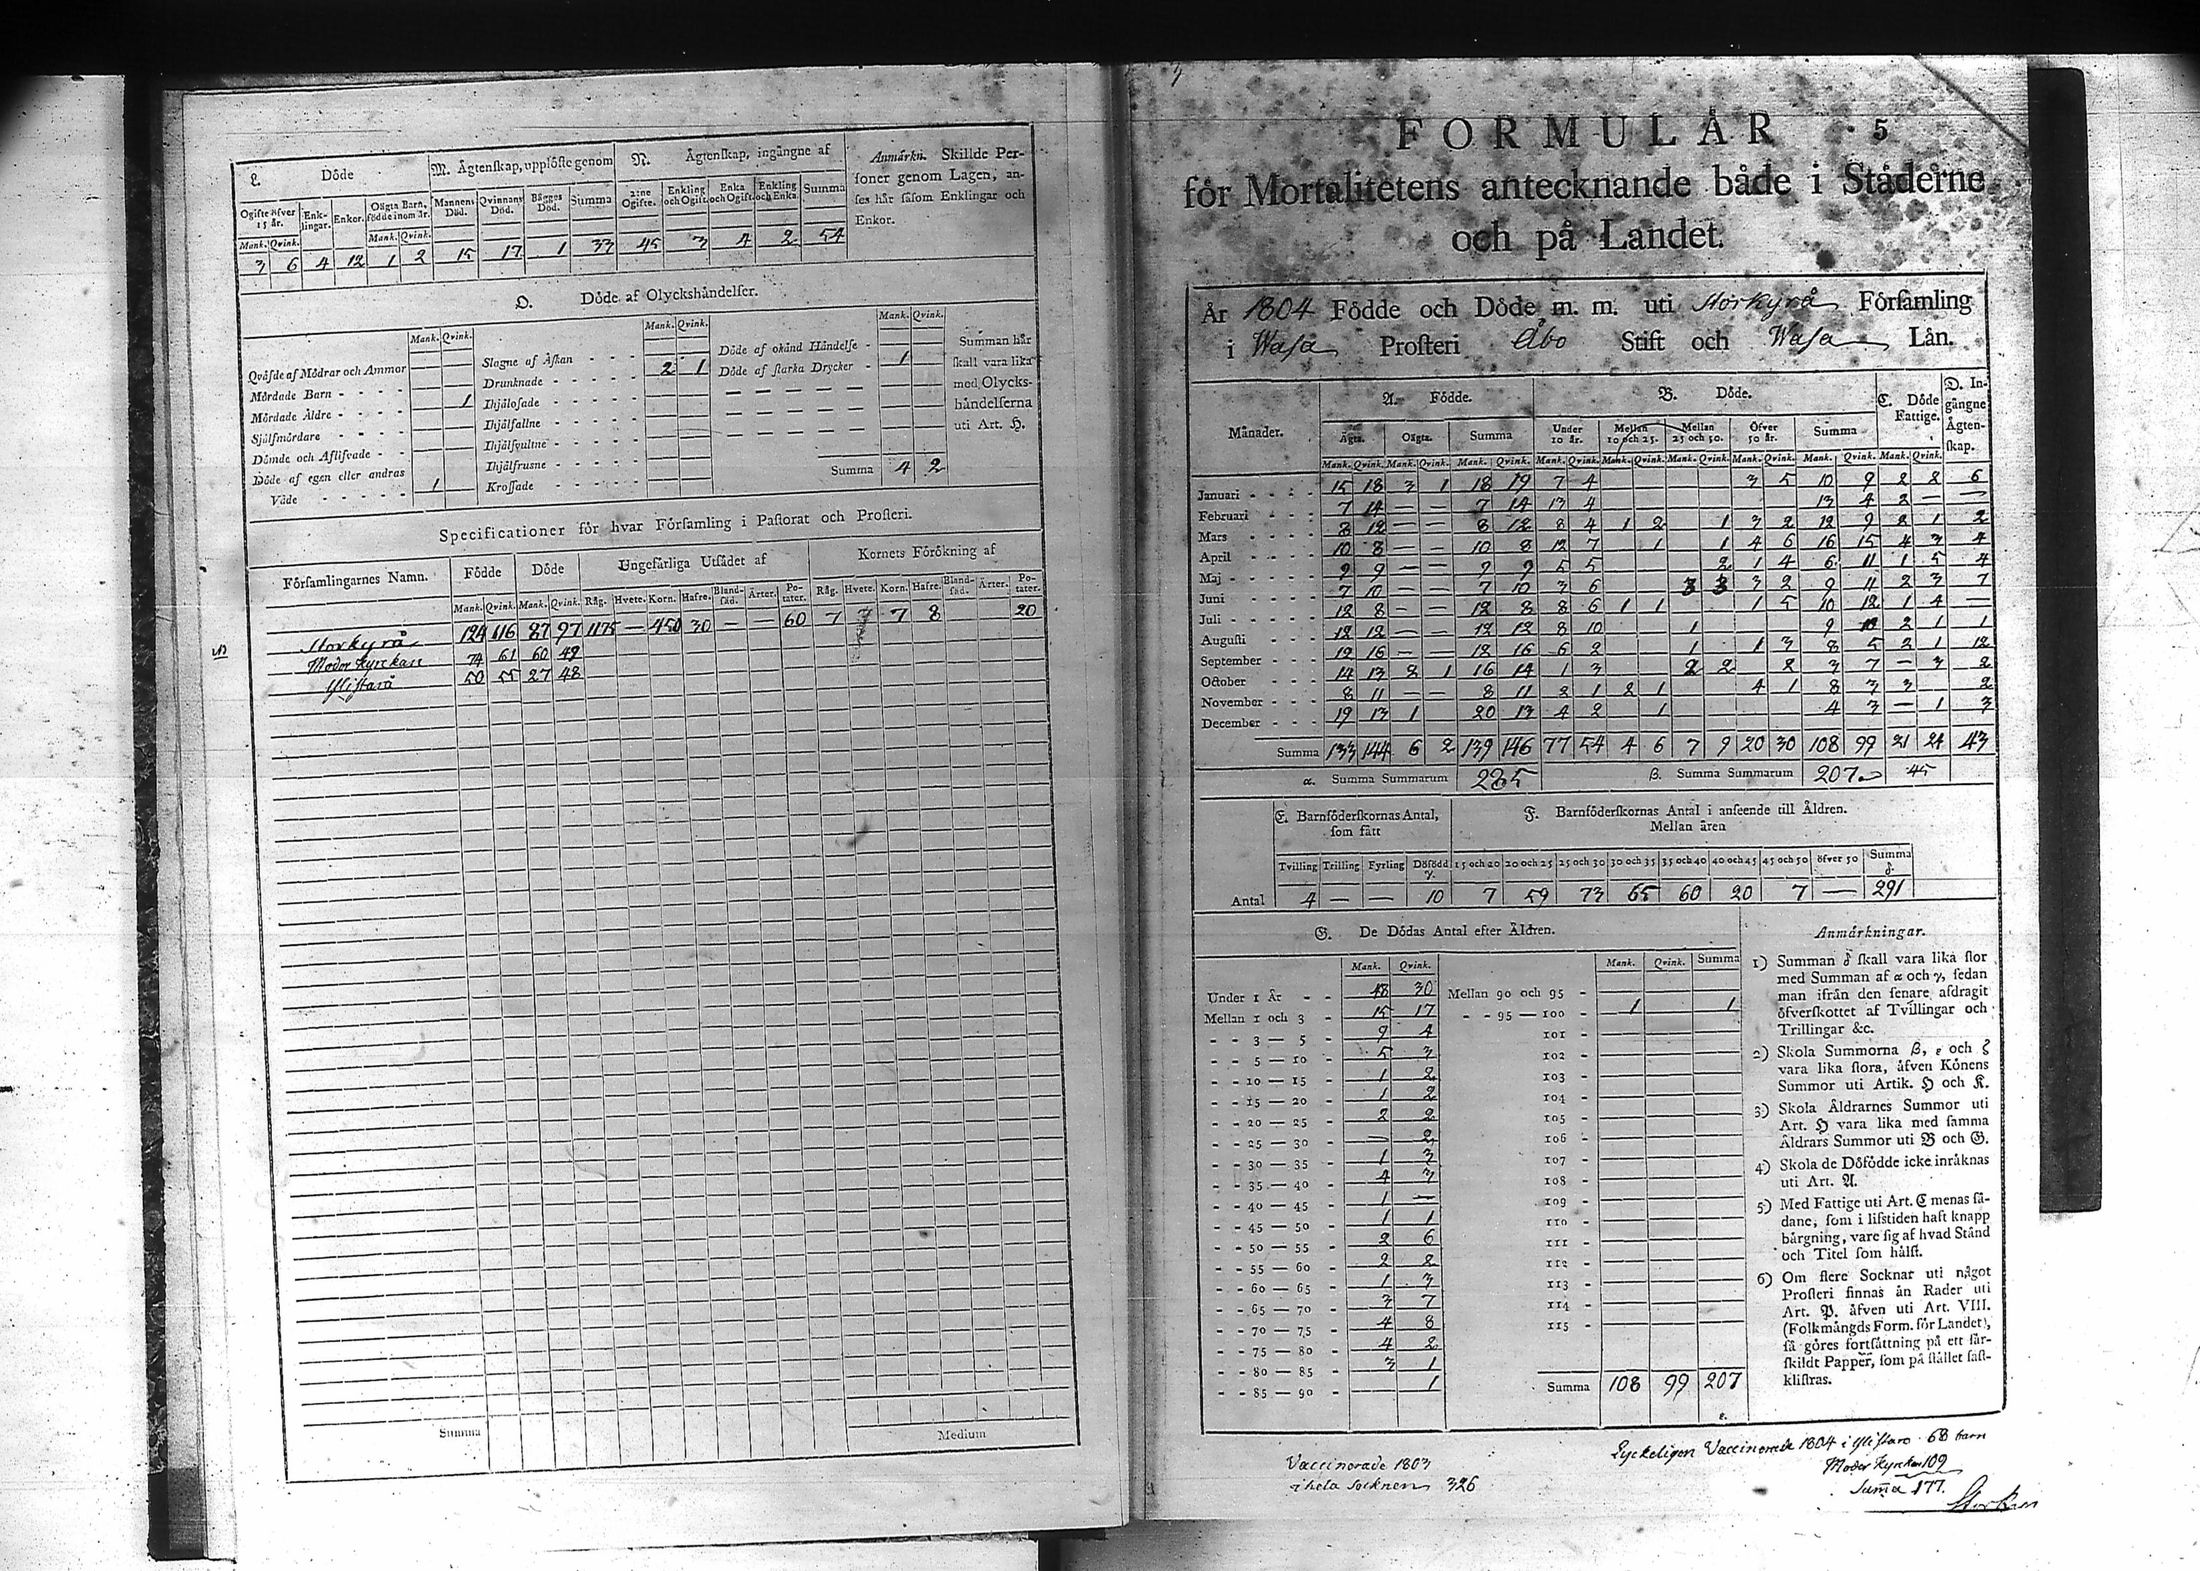 L. Döde
M. Ägtenskap, upplöste genom
N. Ägtenskap, ingångne af
Anmärkn. Skillde Personer genom Lagen, anses här såsom Enklingar och Enkor.
Ogifte öfver 15 år. Enklingar. Enkor. Oägta Barn, födde inom år. Mannens Död. Qvinnans Död. Bägges Död. Summa 2:ne Ogifte. Enkling och Ogift. Enka och Ogift. Enkling och Enka. Summa
Mank. Qvink. Mank. Qvink.
3 6 4 12 1 2 15 17 1 33 45 3 4 2 54
O. Döde af Olyckshändelser.
Mank. Qvink. Mank. Qvink. Mank. Qvink.
Qväfde af Mödrar och Ammor
Mördade Barn - - - - 1
Mördade Äldre - - - -
Sjelfmördare - - - -
Dömde och Aflifvade - -
Döde af egen eller andras
Våde - - - - - 1
Slagne af Åskan - - -
Drunknade - - - - - 2 1
Ihjälosade - - - - -
Ihjälfallne - - - - -
Ihjälsvultne - - - - -
Ihjälfrusne - - - - -
Krossade - - - - - -
Döde af okänd Händelse -
Döde af starka Drycker - 1
Summa 4 2
Summan här
skall vara lika
med Olycks-
händelserna
uti Art. H.
Specificationer för hvar Församling i Pastorat och Prosteri.
Församlingarnes Namn. Födde Döde Ungefärliga Utsädet af Kornets Förökning af
Mank. Qvink. Mank. Qvink. Råg. Hvete. Korn. Hafre. Blandsäd. Ärter. Potater. Råg. Hvete. Korn. Hafre. Blandsäd. Ärter. Potater.
Storkyrå 124 116 87 97 1175 — 450 30 — — 60 7 7 7 8 20
Moder Kyrckan 74 61 60 49
Ylistarå 50 55 27 48
Summa
Medium
FORMULÄR 5
för Mortalitetens antecknande både i Städerne
och på Landet.
År 1804 Födde och Döde m. m. uti Storkyrå Församling
i Wasa Prosteri Åbo Stift och Wasa Län.
Månader. A. Födde. B. Döde. C. Döde Fattige. D. Ingångne Ägtenskap.
Ägta. Oägta. Summa Under 10 år. Mellan 10 och 25. Mellan 25 och 50. Öfver 50 år. Summa
Mank. Qvink. Mank. Qvink. Mank. Qvink. Mank. Qvink. Mank. Qvink. Mank. Qvink. Mank. Qvink. Mank. Qvink. Mank. Qvink.
Januari - - - - 15 18 3 1 18 19 7 4 3 5 10 9 2 2 6
Februari - - - 7 14 — — 7 14 13 4 13 4 2 — —
Mars - - - - 8 12 — — 8 12 8 4 1 2 1 3 2 12 9 2 1 2
April - - - - 10 8 — — 10 8 12 7 1 1 4 6 16 15 4 3 4
Maj - - - - 9 9 — — 9 9 5 5 2 1 4 6 11 1 5 4
Juni - - - - 7 10 — — 7 10 3 6 3 3 3 2 9 11 2 3 7
Juli - - - - 12 8 — — 12 8 8 6 1 1 1 5 10 12 1 4 —
Augusti - - - 12 12 — — 12 12 8 10 1 9 10 2 1 1
September - - - 12 16 — — 12 16 6 2 1 1 3 8 5 2 1 12
October - - - 14 13 2 1 16 14 1 3 2 2 2 3 7 — 3 2
November - - - 8 11 — — 8 11 2 1 2 1 4 1 8 3 3 2
December - - - 19 13 1 20 13 4 2 1 4 3 — 1 3
Summa 133 144 6 2 139 146 77 54 4 6 7 9 20 30 108 99 21 24 43
α. Summa Summarum 285 β. Summa Summarum 207 45
E. Barnföderskornas Antal, som fått
F. Barnföderskornas Antal i anseende till Åldren.
Mellan åren
Tvilling Trilling Fyrling Dödfödd γ. 15 och 20 20 och 25 25 och 30 30 och 35 35 och 40 40 och 45 45 och 50 öfver 50 Summa δ.
Antal 4 — — 10 7 59 73 65 60 20 7 — 291
G. De Dödas Antal efter Åldren.
Mank. Qvink. Mank. Qvink. Summa
Under 1 År - - 48 30
Mellan 1 och 3 - 15 17
- - 3 — 5 - 9 4
- - 5 — 10 - 5 3
- - 10 — 15 - 1 2
- - 15 — 20 - 1 2
- - 20 — 25 - 2 2
- - 25 — 30 - — 2
- - 30 — 35 - 1 3
- - 35 — 40 - 4 3
- - 40 — 45 - 1 —
- - 45 — 50 - 1 1
- - 50 — 55 - 2 6
- - 55 — 60 - 2 2
- - 60 — 65 - 1 3
- - 65 — 70 - 3 7
- - 70 — 75 - 4 8
- - 75 — 80 - 4 2
- - 80 — 85 - 3 1
- - 85 — 90 - 1
Mellan 90 och 95 -
- - 95 — 100 - 1 1
101 -
102 -
103 -
104 -
105 -
106 -
107 -
108 -
109 -
110 -
111 -
112 -
113 -
114 -
115 -
Summa 108 99 207
ε.
Anmärkningar.
1) Summan δ skall vara lika stor
med Summan af α och γ, sedan
man ifrån den senare afdragit
öfverskottet af Tvillingar och
Trillingar &c.
2) Skola Summorna β, ε och ζ
vara lika stora, äfven Könens
Summor uti Artik. H och K.
3) Skola Åldrarnes Summor uti
Art. H vara lika med samma
Åldrars Summor uti B och G.
4) Skola de Döfödde icke inräknas
uti Art. A.
5) Med Fattige uti Art. C menas så-
dane, som i lifstiden haft knapp
bärgning, vare sig af hvad Stånd
och Titel som hälst.
6) Om flere Socknar uti något
Prosteri finnas än Rader uti
Art. P. äfven uti Art. VIII.
(Folkmängds Form. för Landet),
så göres fortsättning på ett sär-
skildt Papper, som på stället fast-
klistras.
Vaccinerade 1803
i hela Socknen 326
Lyckeligen Vaccinerade 1804 i Ylistaro 68 barn
Moder Kyrckan 109
Suma 177.